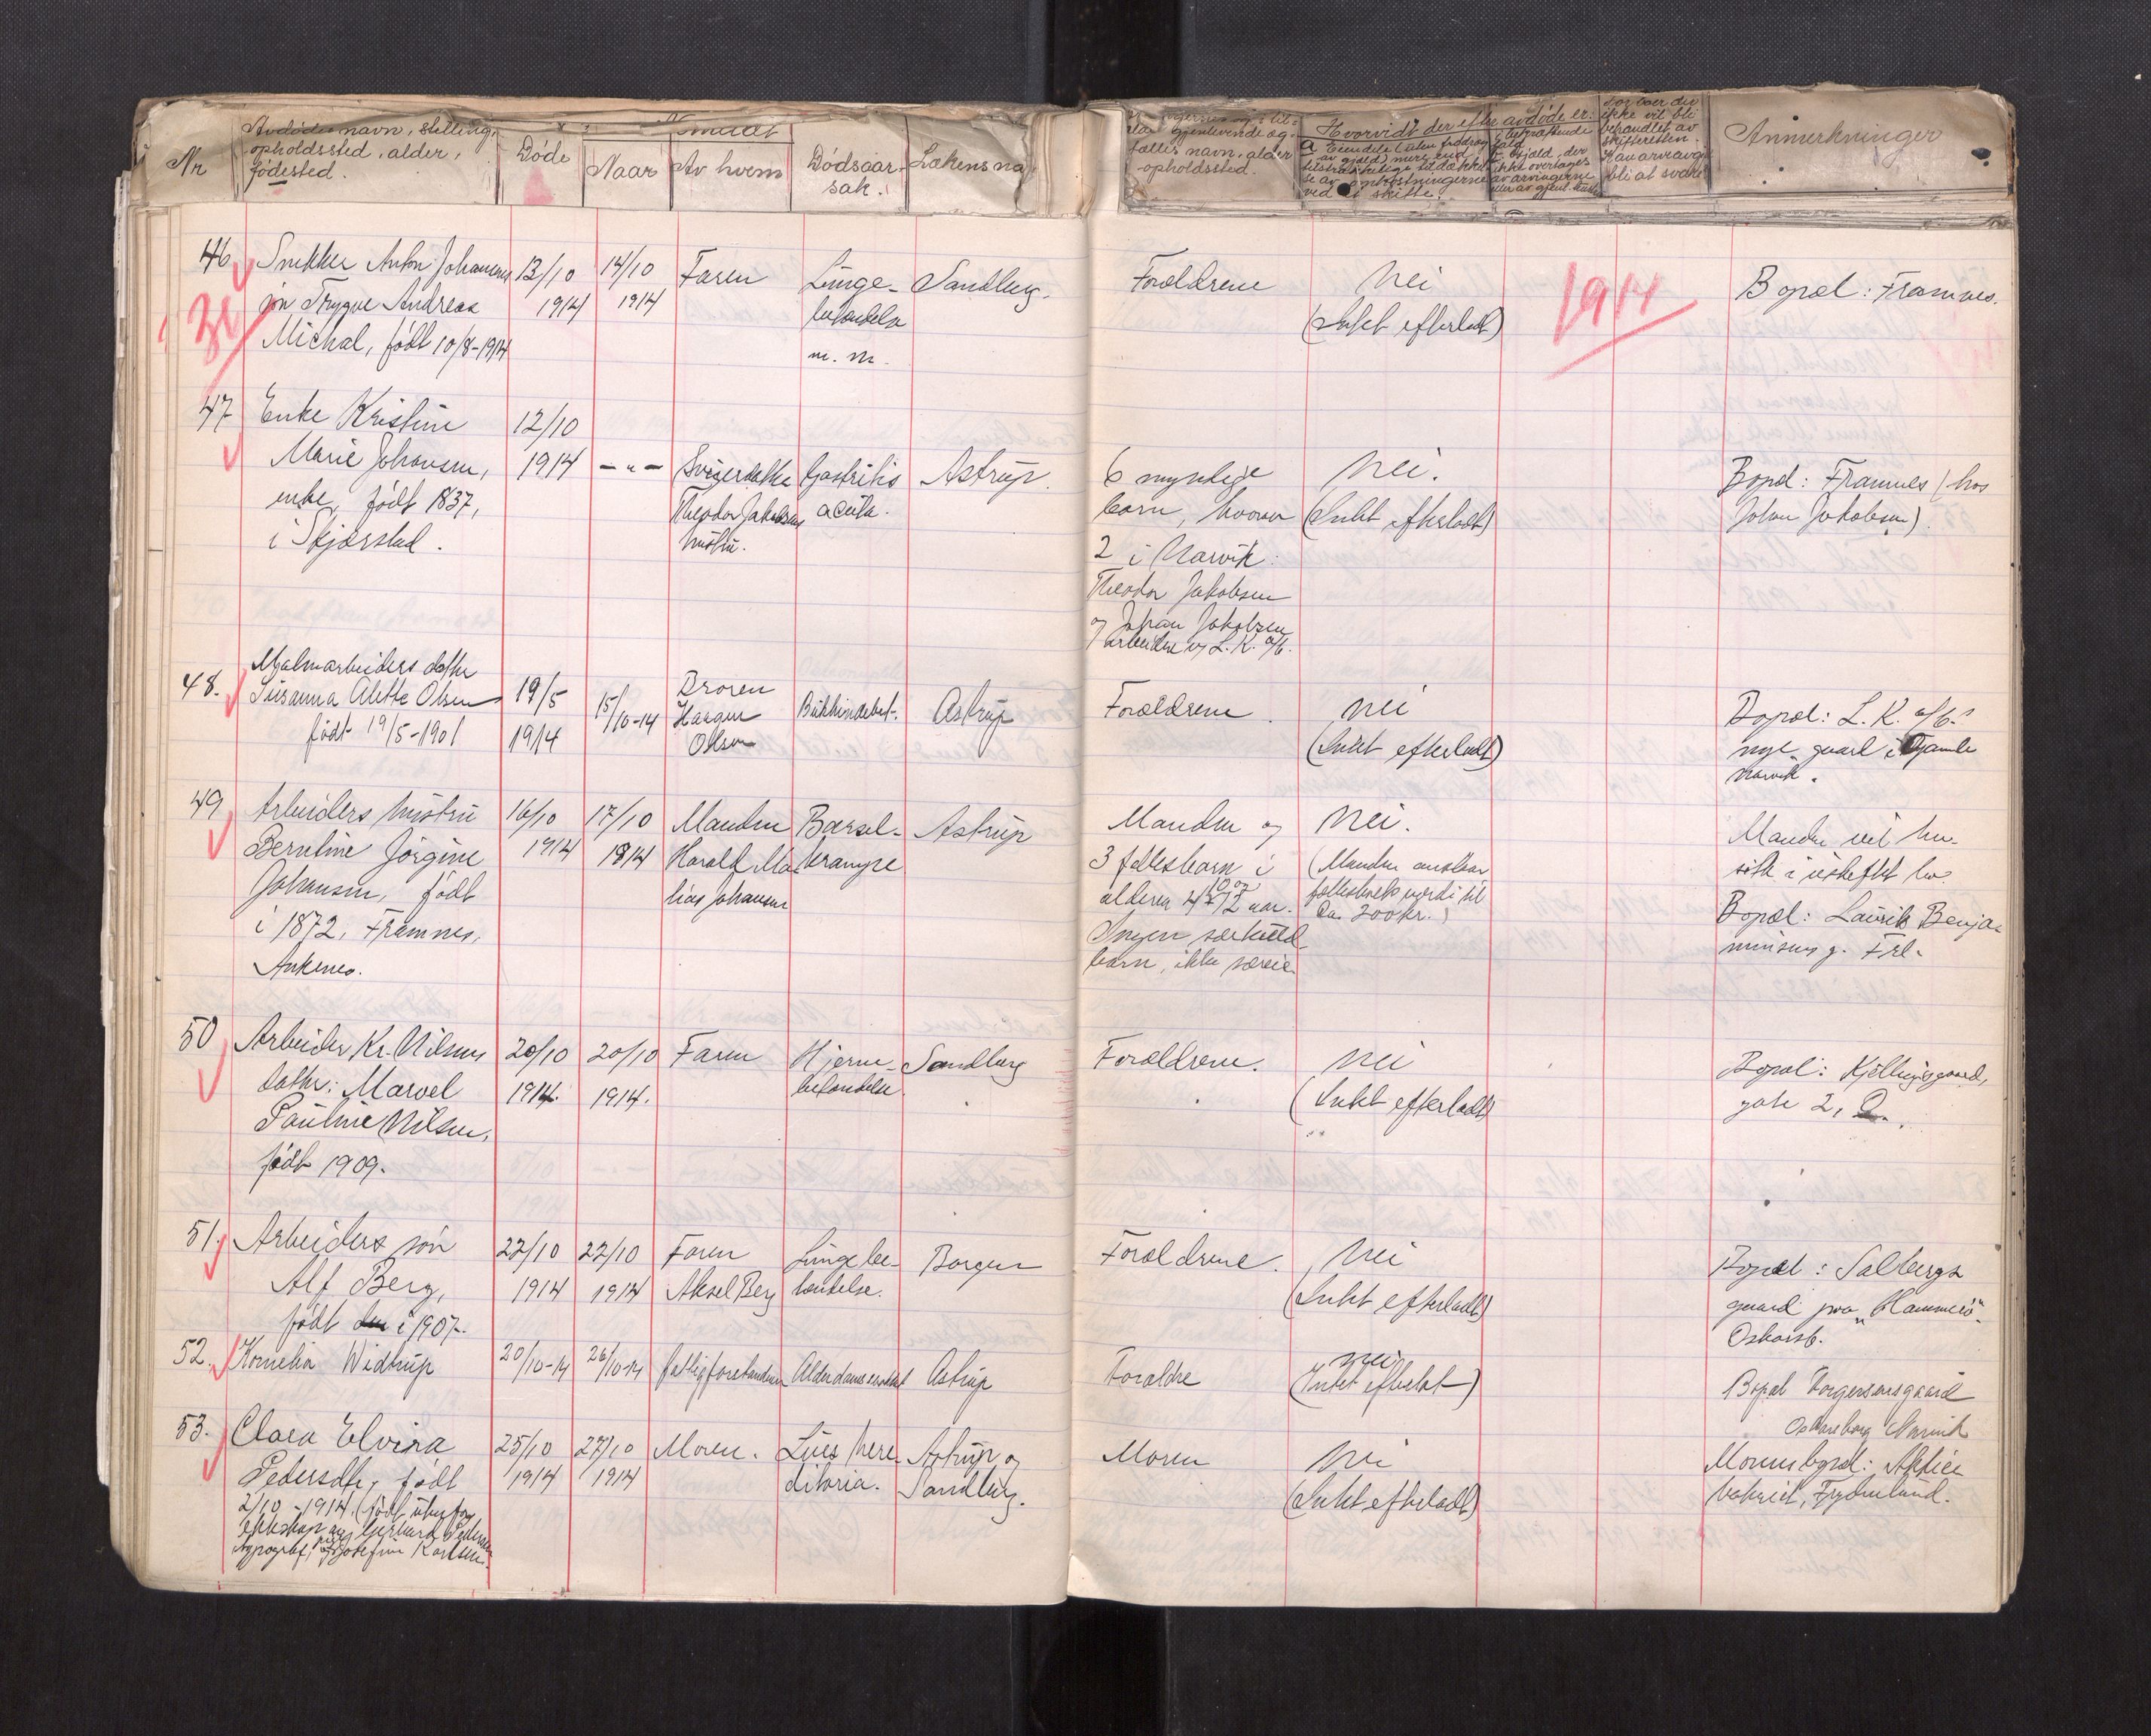 Nr
Avdødes navn, stilling,
opholdssted, alder,
fødested.
Døde
Naar
Av hvem
Dødsaar-
sak.
Lækens na
fælles navn, alder
opholdssted.
Hvorvidt der efter avdøde er:
Anmerkninger
46
Snekker Anton Johansens
søn Trygve Andreas
Michal, født 10/8-1914
13/10
1914
14/10
1914
Faren
Lunge-
betændelse
m. m.
Sandberg.
Forældrene
Nei
(Intet efterladt)
1914
Bopæl: Framnes.
47
Enke Kristine
Marie Johansen,
enke, født 1837,
i Skjærstad.
12/10
1914
- " -
Svigerdatter
Theodor Jakobsens
hustru.
Gastritis
acuta.
Astrup.
6 myndige
barn, hvorav
2 i Narvik:
Theodor Jakobsen
og Johan Jakobsen
arbeidere v/ L. K. a/b.
Nei.
(Intet efterladt)
Bopæl: Framnes (hos
Johan Jakobsen).
48.
Malmarbeiders datter
Susanna Alette Olsen
født 19/5-1901
19/5
1914
15/10-14
Broren
Haagen
Olsen
Blindtarmbet.
Astrup
Forældrene.
Nei
(Intet efterladt)
Bopæl: L. K. a/b.s
nye gaard i Gamle
Narvik.
49
Arbeiders hustru
Berntine Jørgine
Johansen, født
i 1872, Framnes,
Ankenes.
16/10
1914
17/10
1914
Manden
Harald Ma-
lias Johansen
Barsel-
krampe
Astrup
Manden og
3 fællesbarn i
alderen 4, 10 og 12 aar.
Ingen særkuld-
barn, ikke særeie.
Nei.
(Manden anslaar
fællesboets værdi til
ca. 200 kr.)
Manden vil hen-
sitte i uskiftet bo.
Bopæl: Laurits Benja-
minsens g. Frl.
50
Arbeider Kr. Nilsens
datter: Marvel
Pauline Nilsen,
født 1909.
20/10
1914.
20/10
1914.
Faren
Hjerne-
betændelse.
Sandberg
Forældrene.
Nei
(Intet efterladt)
Bopæl: Kjellingsgaard,
gate 2, O.
51.
Arbeiders søn
Alf Berg,
født i 1907.
22/10
1914
22/10
1914
Faren
Aksel Berg
Lungebe-
tændelse.
Borgen
Forældrene.
Nei
(Intet efterladt)
Bopæl: Salbergs
gaard paa "Hammern"
Oskarsb.
52.
Kornelia Widtrup
20/10-14
26/10-14
fattigforstanderen
Alderdomssvakhet
Astrup
Forældre
nei
(Intet efterlat)
Bopæl Torgersensgaard
Oskarsborg Narvik
53.
Clara Elvira
Pedersdtr, født
2/10-1914. (født utenfor
ekteskap av Gerhard Pedersen
typograf, og Josefine Karlsen.
25/10
1914
27/10
1914
Moren.
Lues here-
ditaria.
Astrup og
Sandberg.
Moren
Nei
(Intet efterladt)
Morens bopæl: Aktie-
bakeriet, Frydenlund.